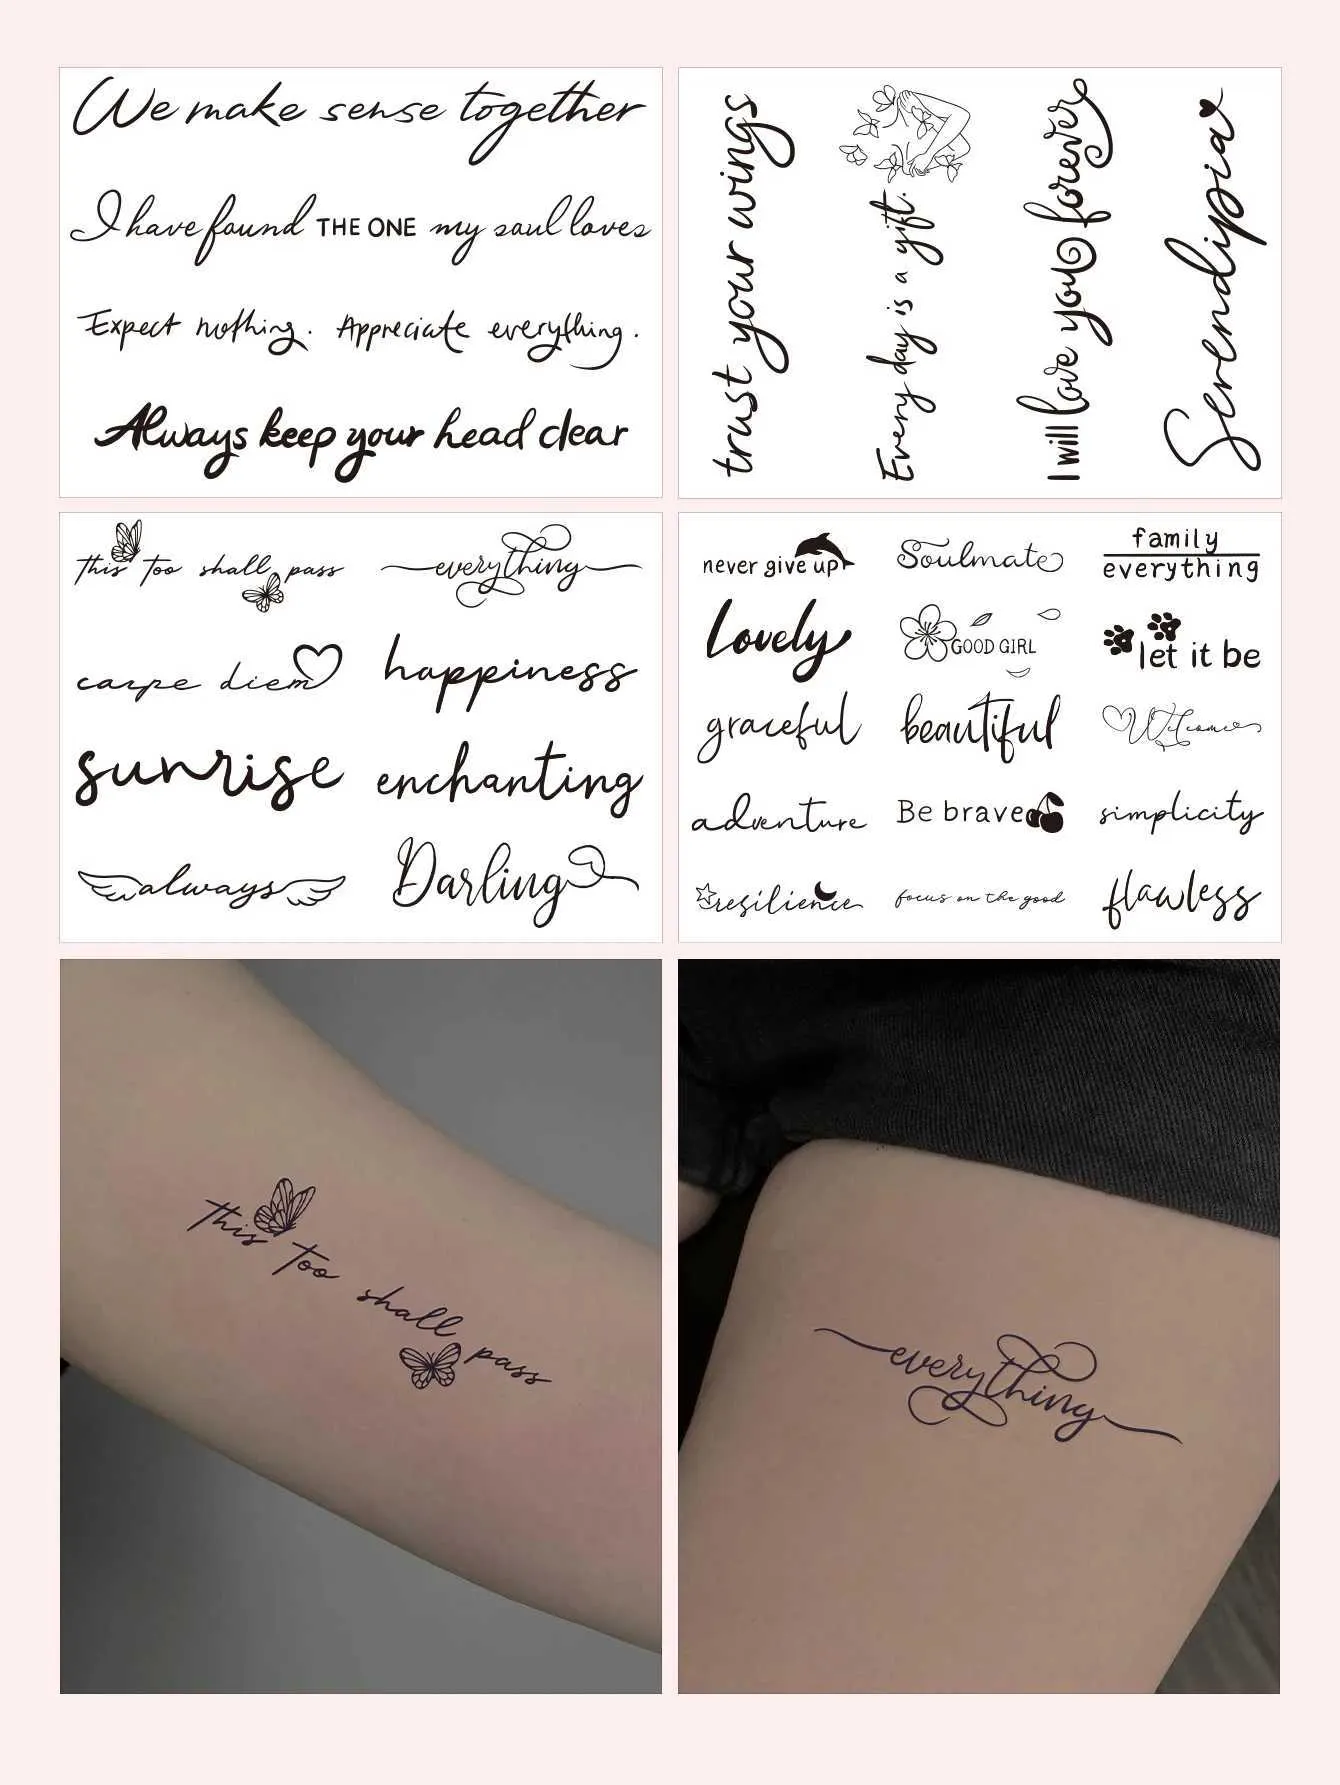 We make sense together
I have found THE ONE my soul loves
Expect nothing. Appreciate everything.
Always keep your head clear
trust your wings
Every day is a gift.
I will love you forever
Serendipia
this too shall pass
everything
carpe diem
happiness
sunrise
enchanting
always
Darling
never give up
Soulmate
family
everything
Lovely
GOOD GIRL
let it be
graceful
beautiful
Welcome
adventure
Be brave
simplicity
resilience
focus on the good
flawless
this too shall pass
everything